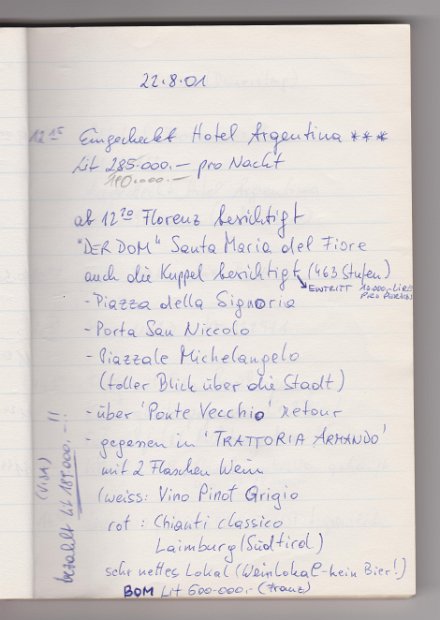 22.8.01
12 15 Eingecheckt Hotel Argentina ***
Lit 285.000.— pro Nacht
110.000.—
ab 12 20 Florenz besichtigt
"DER DOM" Santa Maria del Fiore
auch die Kuppel besichtigt (463 Stufen)
EINTRITT 10.000.- LIRE
PRO PERSON
- Piazza della Signoria
- Porta San Niccolo
- Piazzale Michelangelo
(toller Blick über die Stadt)
- über 'Ponte Vecchio' retour
- gegessen in 'TRATTORIA ARMANDO'
mit 2 Flaschen Wein
(weiss: Vino Pinot Grigio
rot : Chianti classico
Laimburg (Südtirol)
sehr nettes Lokal (Weinlokal - kein Bier!)
BOM Lit 600.000.-
(VISA)
bezahlt Lit 189.000.—!!